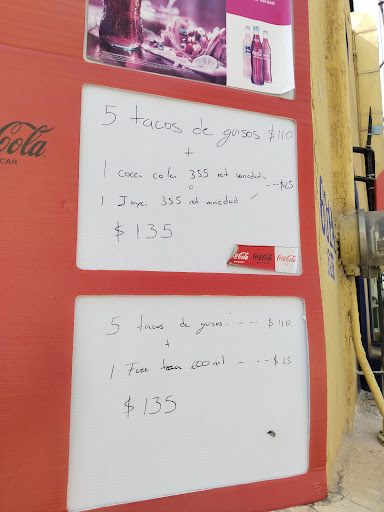 Coca-Cola
CAR
5 tacos de guisos $110
+
1 coca cola 355 ret variedad
o ---$25
1 Joya 355 ret variedad
$135
Coca-Cola Coca-Cola
5 tacos de guisos --- $110
+
1 Fuze tea 600 ml - --- $25
$135